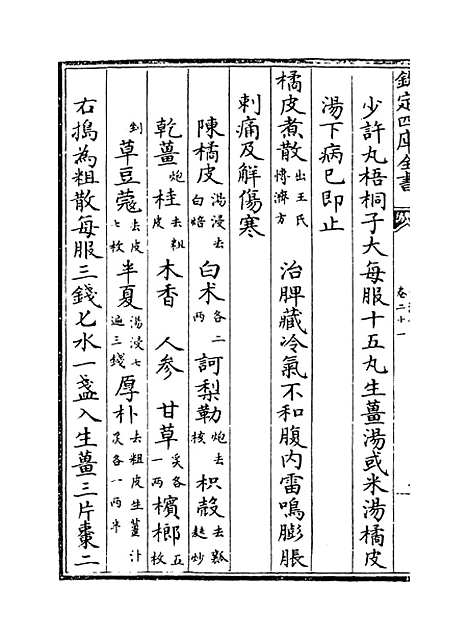 欽定四庫全書 卷二十一
少許丸梧桐子大每服十五丸生薑湯或米湯橘皮
湯下病已即止
橘皮煮散 出王氏博濟方 治脾藏冷氣不和腹内雷鳴膨脹
刺痛及解傷寒
陳橘皮 湯浸去白焙 白术 各二兩 訶梨勒 炮去核 枳殼 去瓤麩炒
乾薑 炮 桂 去粗皮 木香 人參 甘草 炙各一兩 檳榔 五枚
剉 草豆蔻 去皮七枚 半夏 湯浸七遍三錢 厚朴 去粗皮生薑汁炙各一兩半
右搗為粗散每服三錢匕水一盞入生薑三片棗二